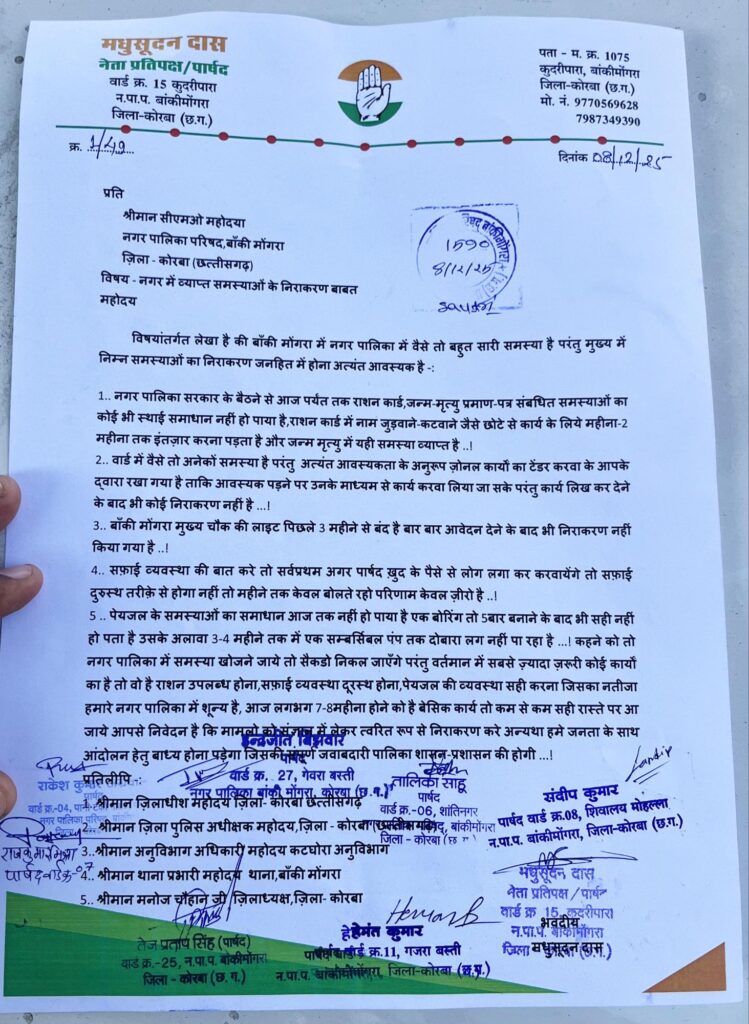 मधुसूदन दास
नेता प्रतिपक्ष/पार्षद
वार्ड क्र. 15 कुदरीपारा
न.पा.प. बांकीमोंगरा
जिला-कोरबा (छ.ग.)
पता - म. क्र. 1075
कुदरीपारा, बांकीमोंगरा,
जिला-कोरबा (छ.ग.)
मो. नं. 9770569628
7987349390
क्र. 1/49
दिनांक 08/12/25
प्रति
श्रीमान सीएमओ महोदया
नगर पालिका परिषद,बाँकी मोंगरा
ज़िला - कोरबा (छत्तीसगढ़)
विषय - नगर में व्याप्त समस्याओं के निराकरण बाबत
महोदय
बांकीमोंगरा
1590
8/12/25
विषयांतर्गत लेखा है की बाँकी मोंगरा में नगर पालिका में वैसे तो बहुत सारी समस्या है परंतु मुख्य में
निम्न समस्याओं का निराकरण जनहित में होना अत्यंत आवस्यक है -:
1.. नगर पालिका सरकार के बैठने से आज पर्यत तक राशन कार्ड,जन्म-मृत्यु प्रमाण-पत्र संबधित समस्याओं का
कोई भी स्थाई समाधान नहीं हो पाया है,राशन कार्ड में नाम जुड़वाने-कटवाने जैसे छोटे से कार्य के लिये महीना-2
महीना तक इंतज़ार करना पड़ता है और जन्म मृत्यु में यही समस्या व्याप्त है ..!
2.. वार्ड में वैसे तो अनेकों समस्या है परंतु अत्यंत आवस्यकता के अनुरूप ज़ोनल कार्यो का टेंडर करवा के आपके
द्वारा रखा गया है ताकि आवस्यक पड़ने पर उनके माध्यम से कार्य करवा लिया जा सके परंतु कार्य लिख कर देने
के बाद भी कोई निराकरण नहीं है ...!
3.. बाँकी मोंगरा मुख्य चौक की लाइट पिछले 3 महीने से बंद है बार बार आवेदन देने के बाद भी निराकरण नहीं
किया गया है ..!
4.. सफ़ाई व्यवस्था की बात करे तो सर्वप्रथम अगर पार्षद ख़ुद के पैसे से लोग लगा कर करवायेंगे तो सफ़ाई
दुरुस्थ तरीक़े से होगा नहीं तो महीने तक केवल बोलते रहो परिणाम केवल ज़ीरो है ..!
5 .. पेयजल के समस्याओं का समाधान आज तक नहीं हो पाया है एक बोरिंग तो 5बार बनाने के बाद भी सही नहीं
हो पता है उसके अलावा 3-4 महीने तक में एक सम्बर्सिबल पंप तक दोबारा लग नहीं पा रहा है ...! कहने को तो
नगर पालिका में समस्या खोजने जाये तो सैकडो निकल जाएँगे परंतु वर्तमान में सबसे ज़्यादा ज़रुरी कोई कार्यो
का है तो वो है राशन उपलब्ध होना,सफ़ाई व्यवस्था दूरस्थ होना,पेयजल की व्यवस्था सही करना जिसका नतीजा
हमारे नगर पालिका में शून्य है, आज लगभग 7-8महीना होने को है बेसिक कार्य तो कम से कम सही रास्ते पर आ
जाये आपसे निवेदन है कि मामलो को संज्ञान में लेकर त्वरित रूप से निराकरण करे अन्यथा हमे जनता के साथ
आंदोलन हेतु बाध्य होना पड़ेगा जिसकी संपूर्ण जवाबदारी पालिका शासन-प्रशासन की होगी ...!
इन्द्रजीत बिंझवार
पार्षद
वार्ड क्र. 27, गेवरा बस्ती
नगर पालिका बांकी मोंगरा, कोरबा (छ.ग.)
राकेश कुमार
पार्षद
वार्ड क्र.-04,
नगर पालिका परिषद
तालिका साहू
पार्षद
वार्ड क्र.-06, शांतिनगर
बांकीमोंगरा
संदीप कुमार
पार्षद वार्ड क्र.08, शिवालय मोहल्ला
न.पा.प. बांकीमोंगरा, जिला-कोरबा (छ.ग.)
प्रतिलीपि -
1. श्रीमान ज़िलाधीश महोदय ज़िला- कोरबा छत्तीसगढ़
2.. श्रीमान ज़िला पुलिस अधीक्षक महोदय,ज़िला - कोरबा (छत्तीसगढ़)
3..श्रीमान अनुविभाग अधिकारी महोदय कटघोरा अनुविभाग
4.. श्रीमान थाना प्रभारी महोदय थाना,बाँकी मोंगरा
5.. श्रीमान मनोज चौहान जी ज़िलाध्यक्ष,ज़िला - कोरबा
पार्षद वार्ड क्र-07
तेज प्रताप सिंह (पार्षद)
वार्ड क्र.-25, न.पा.प. बांकीमोंगरा
जिला - कोरबा (छ.ग.)
हेमंत कुमार
पार्षद वार्ड क्र.11, गजरा बस्ती
न.पा.प. बांकीमोंगरा, जिला-कोरबा (छ.ग.)
मधुसूदन दास
नेता प्रतिपक्ष / पार्षद
वार्ड क्र. 15, कुदरीपारा
न.पा.प. बांकीमोंगरा
जिला - कोरबा (छ.ग.)
भवदीय
मधुसूदन दास